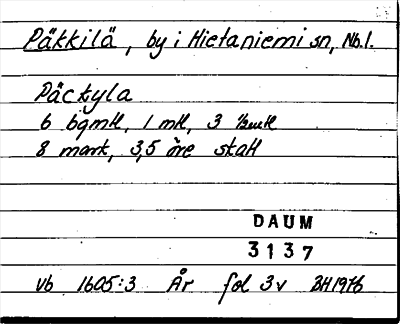 Päkkilä, by i Hietaniemi sn, Nb.l.
Päckyla
6 bgmtl, 1 mtl, 3 ½mtl
8 mark, 3,5 öre skatt
DAUM
3137
Vb 1605:3 År fol 3v BH1976